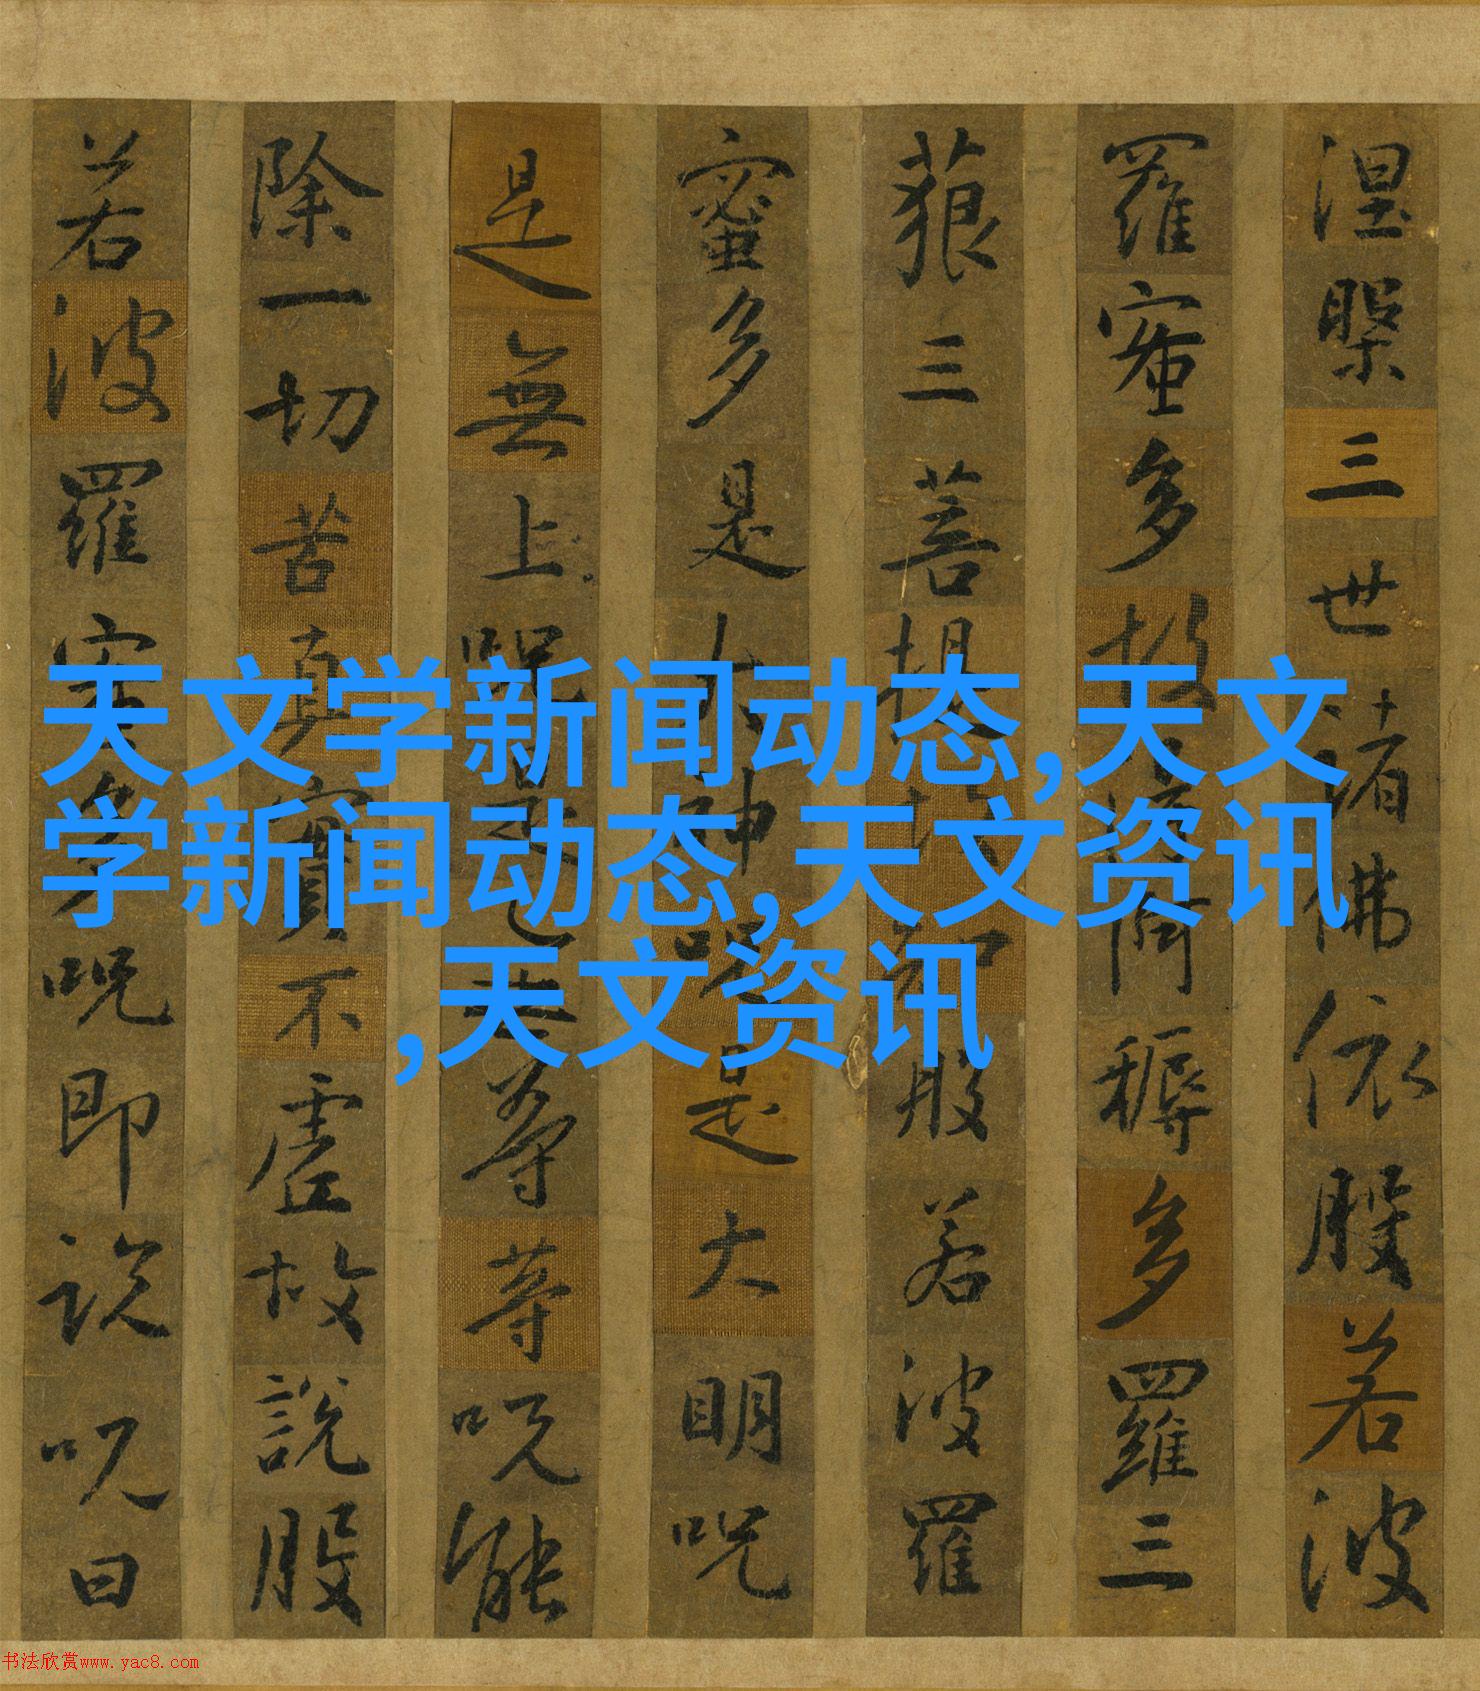 涅槃三世諸佛依般若波
羅蜜多故得阿耨多羅三
藐三菩提故知般若波羅
蜜多是大神呪是大明呪
是無上呪是無等等呪能
除一切苦真實不虛故說般
若波羅蜜多呪即說呪曰
天文学新闻动态,天文
学新闻动态,天文资讯
,天文资讯
书法欣赏www.yac8.com